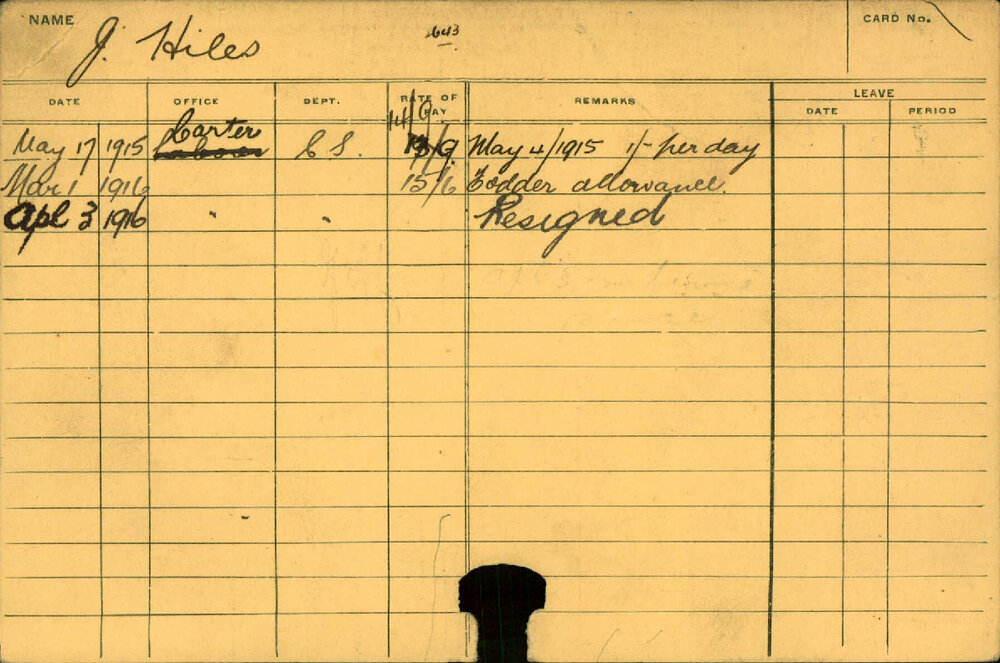 NAME J. Hiles 2643 CARD No.
DATE OFFICE DEPT. RATE OF PAY REMARKS LEAVE
DATE PERIOD
14/9
Carter
May 17 1915 C S. /9 May 4/1915 1/- per day
Mar 1 1916 15/6 Fodder allowance
Apl 3 1916 " " Resigned